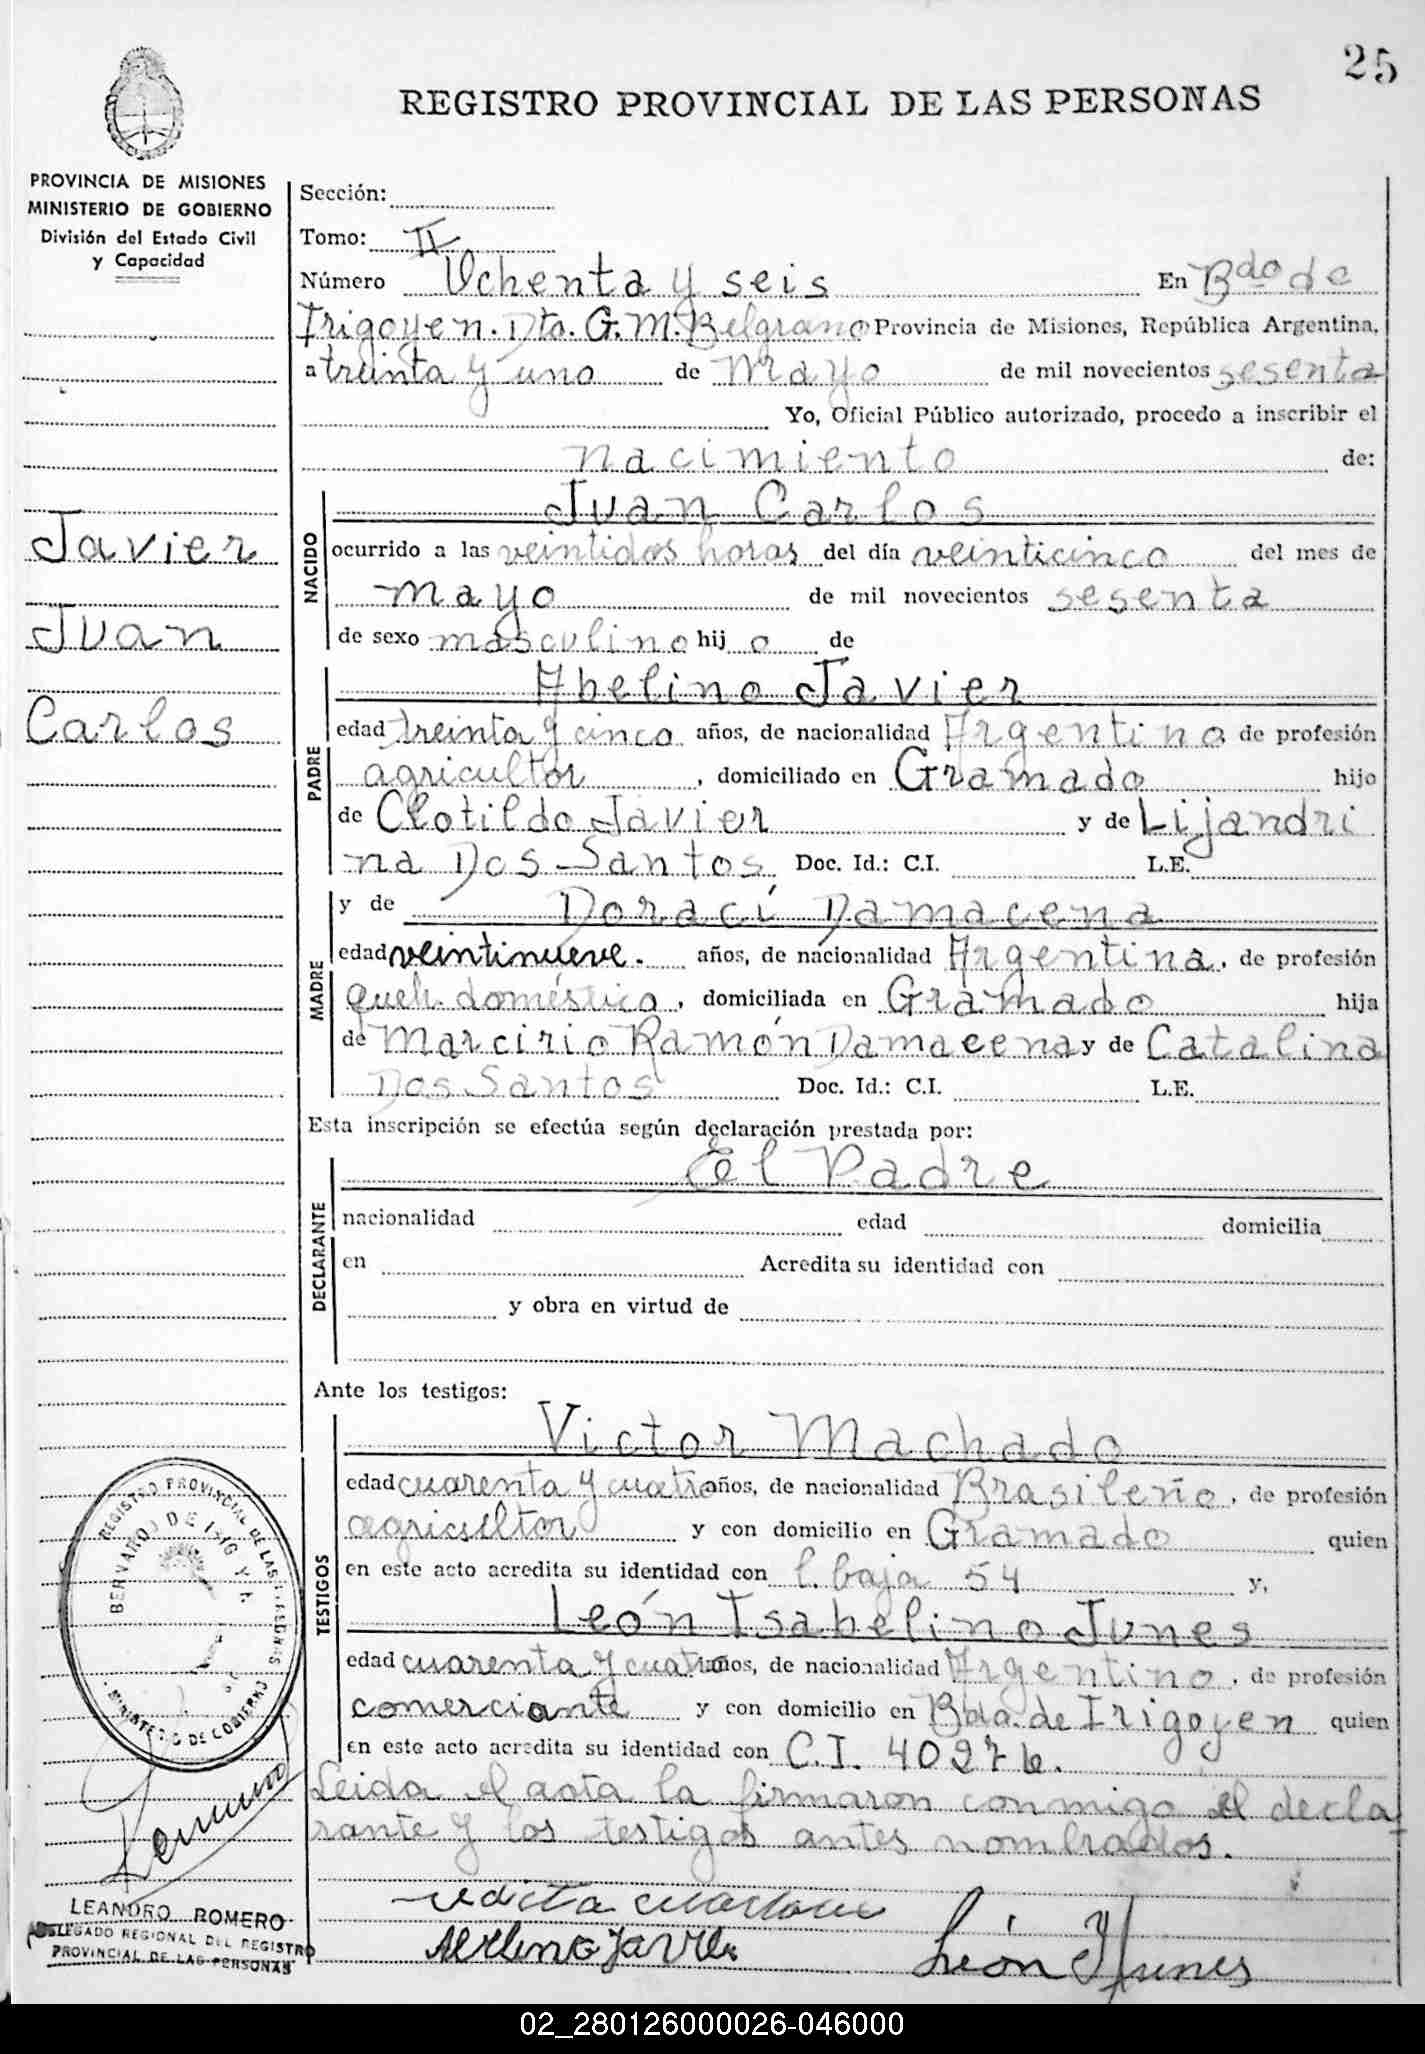 25
REGISTRO PROVINCIAL DE LAS PERSONAS
PROVINCIA DE MISIONES
MINISTERIO DE GOBIERNO
División del Estado Civil
y Capacidad
Javier
Juan
Carlos
Sección:
Tomo: II
Número Ochenta y seis En Bdo de
Irigoyen. Dto. G. M. Belgrano Provincia de Misiones, República Argentina,
a treinta y uno de Mayo de mil novecientos sesenta
Yo, Oficial Público autorizado, procedo a inscribir el
nacimiento de:
NACIDO
Juan Carlos
ocurrido a las veintidos horas del día veinticinco del mes de
mayo de mil novecientos sesenta
de sexo masculino hij o de
PADRE
Abelino Javier
edad treinta y cinco años, de nacionalidad Argentino de profesión
agricultor, domiciliado en Gramado hijo
de Clotildo Javier y de Lijandri
na Dos Santos Doc. Id.: C.I. L.E.
MADRE
y de Doraci Damacena
edad veintinueve. años, de nacionalidad Argentina, de profesión
queh. doméstico, domiciliada en Gramado hija
de Marcirio Ramón Damacena y de Catalina
Dos Santos Doc. Id.: C.I. L.E.
Esta inscripción se efectúa según declaración prestada por:
DECLARANTE
El Padre
nacionalidad edad domicilia
en Acredita su identidad con
y obra en virtud de
Ante los testigos:
TESTIGOS
Victor Machado
edad cuarenta y cuatro años, de nacionalidad Brasileño, de profesión
agricultor y con domicilio en Gramado quien
en este acto acredita su identidad con l. baja 54 y,
León Isabelino Junes
edad cuarenta y cuatro años, de nacionalidad Argentino, de profesión
comerciante y con domicilio en Bdo. de Irigoyen quien
en este acto acredita su identidad con C.I. 40276.
Leida el acta la firmaron conmigo el decla
rante y los testigos antes nombrados.
León Junes
REGISTRO PROVINCIAL DE LAS PERSONAS
BERNARDO DE IRIGOYEN
MINISTERIO DE GOBIERNO
LEANDRO ROMERO
DELEGADO REGIONAL DEL REGISTRO
PROVINCIAL DE LAS PERSONAS
02_280126000026-046000